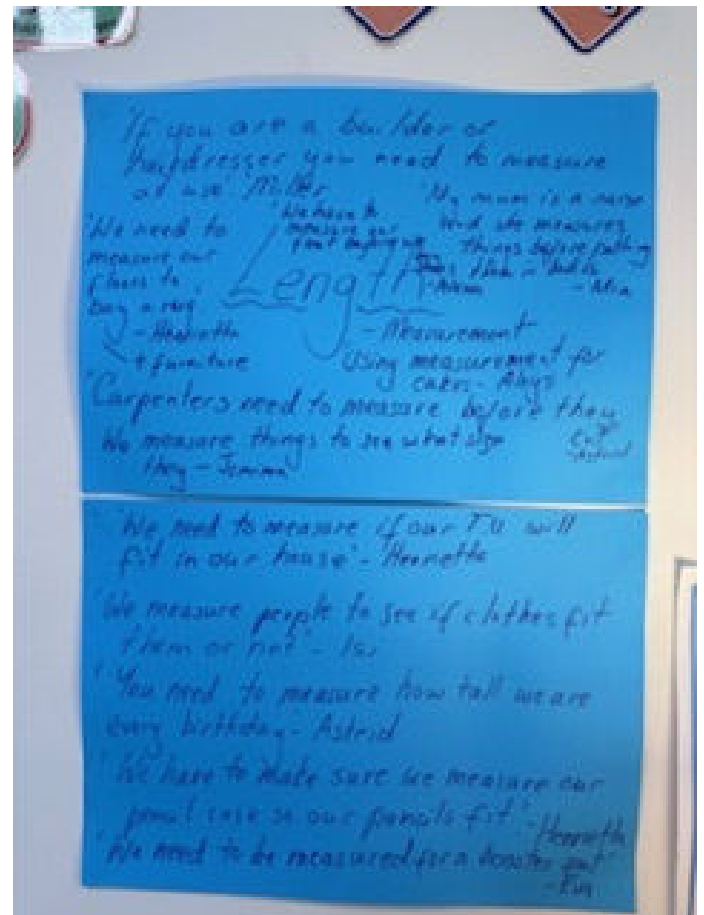 'If you are a builder or
hairdresser you need to measure
Miller
'We need to
measure our
floors to
buy a rug
- Henrietta
+ furniture
'We have to
measure our
feet
'My mum is a nurse
and she measures
things before putting
- Mia
Length
- Measurement
Using measurement for
cakes -
'Carpenters need to measure before they
cut
- Astrid
We measure things to see what size
they - Jemima
'We need to measure if our T.V will
fit in our house' - Henrietta
'We measure people to see if clothes fit
them or not' - Isi
'You need to measure how tall we are
every birthday - Astrid
'We have to make sure we measure our
pencil case so our pencils fit'
- Henrietta
'We need to be measured for a